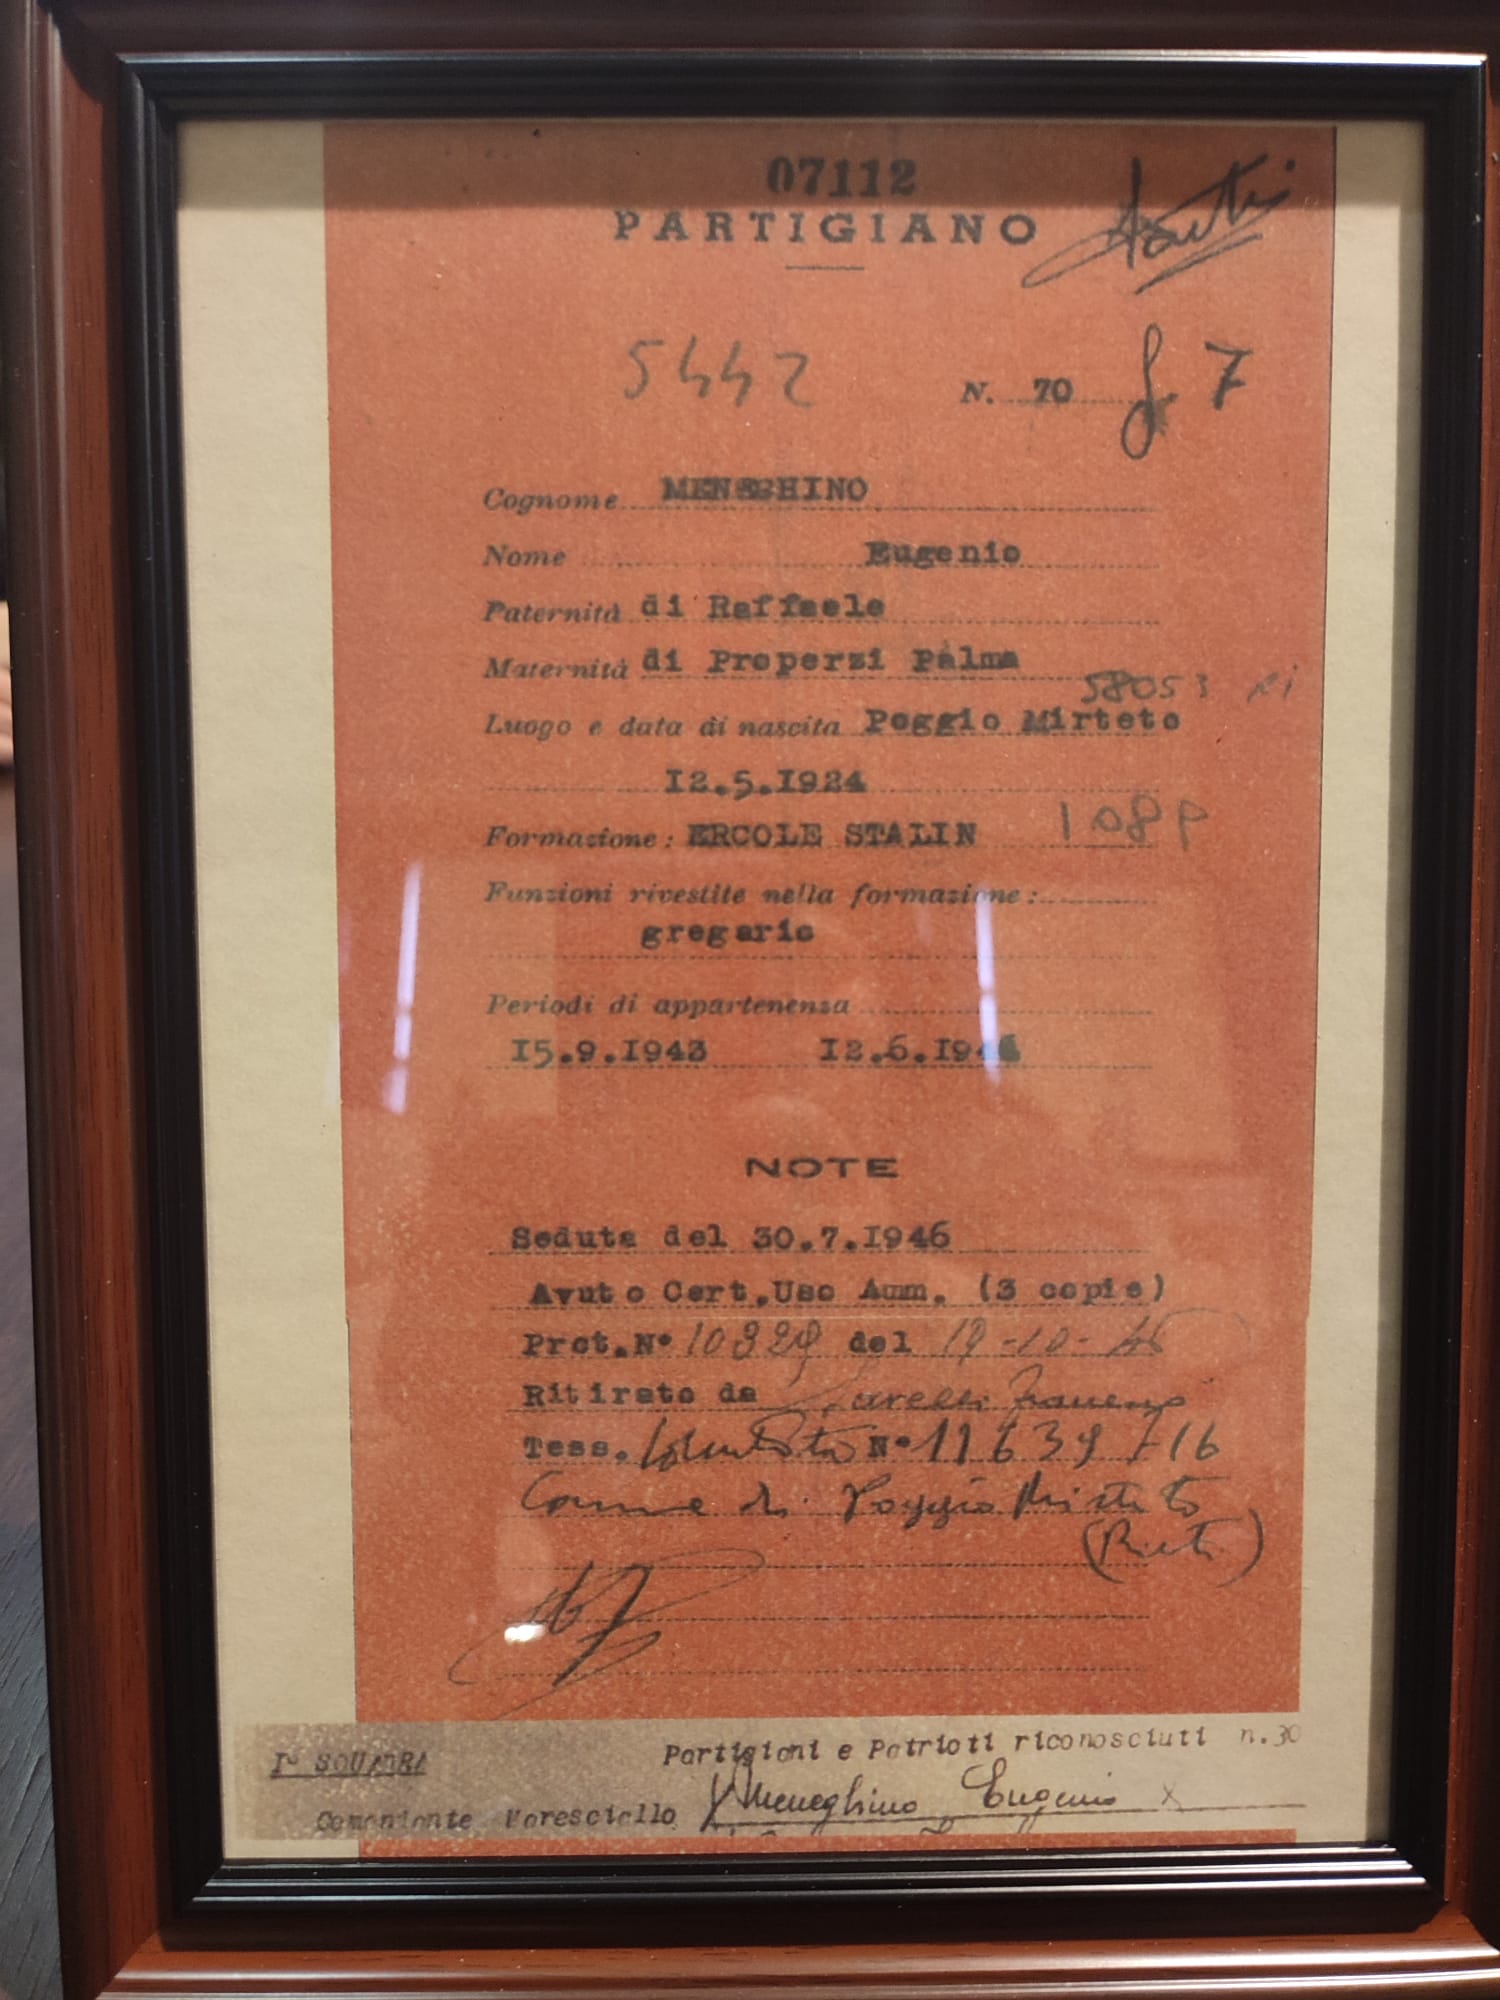 07112
PARTIGIANO
5442
N. 70 7
Cognome MENEGHINO
Nome Eugenio
Paternità di Raffaele
Maternità di Properzi Palma
58053
Luogo e data di nascita Poggio Mirteto
12.5.1924
Formazione: ERCOLE STALIN
Funzioni rivestite nella formazione:
gregario
Periodi di appartenenza
15.9.1943 12.6.1944
NOTE
Seduta del 30.7.1946
Avuto Cert.Uso Amm. (3 copie)
Prot.N° del
Ritirato da
Tess. N° 11639716
Comune di Poggio Mirteto
(Rieti)
Partigiani e Patrioti riconosciuti n.30
I° SQUADRA
Comandante Maresciallo Meneghino Eugenio x